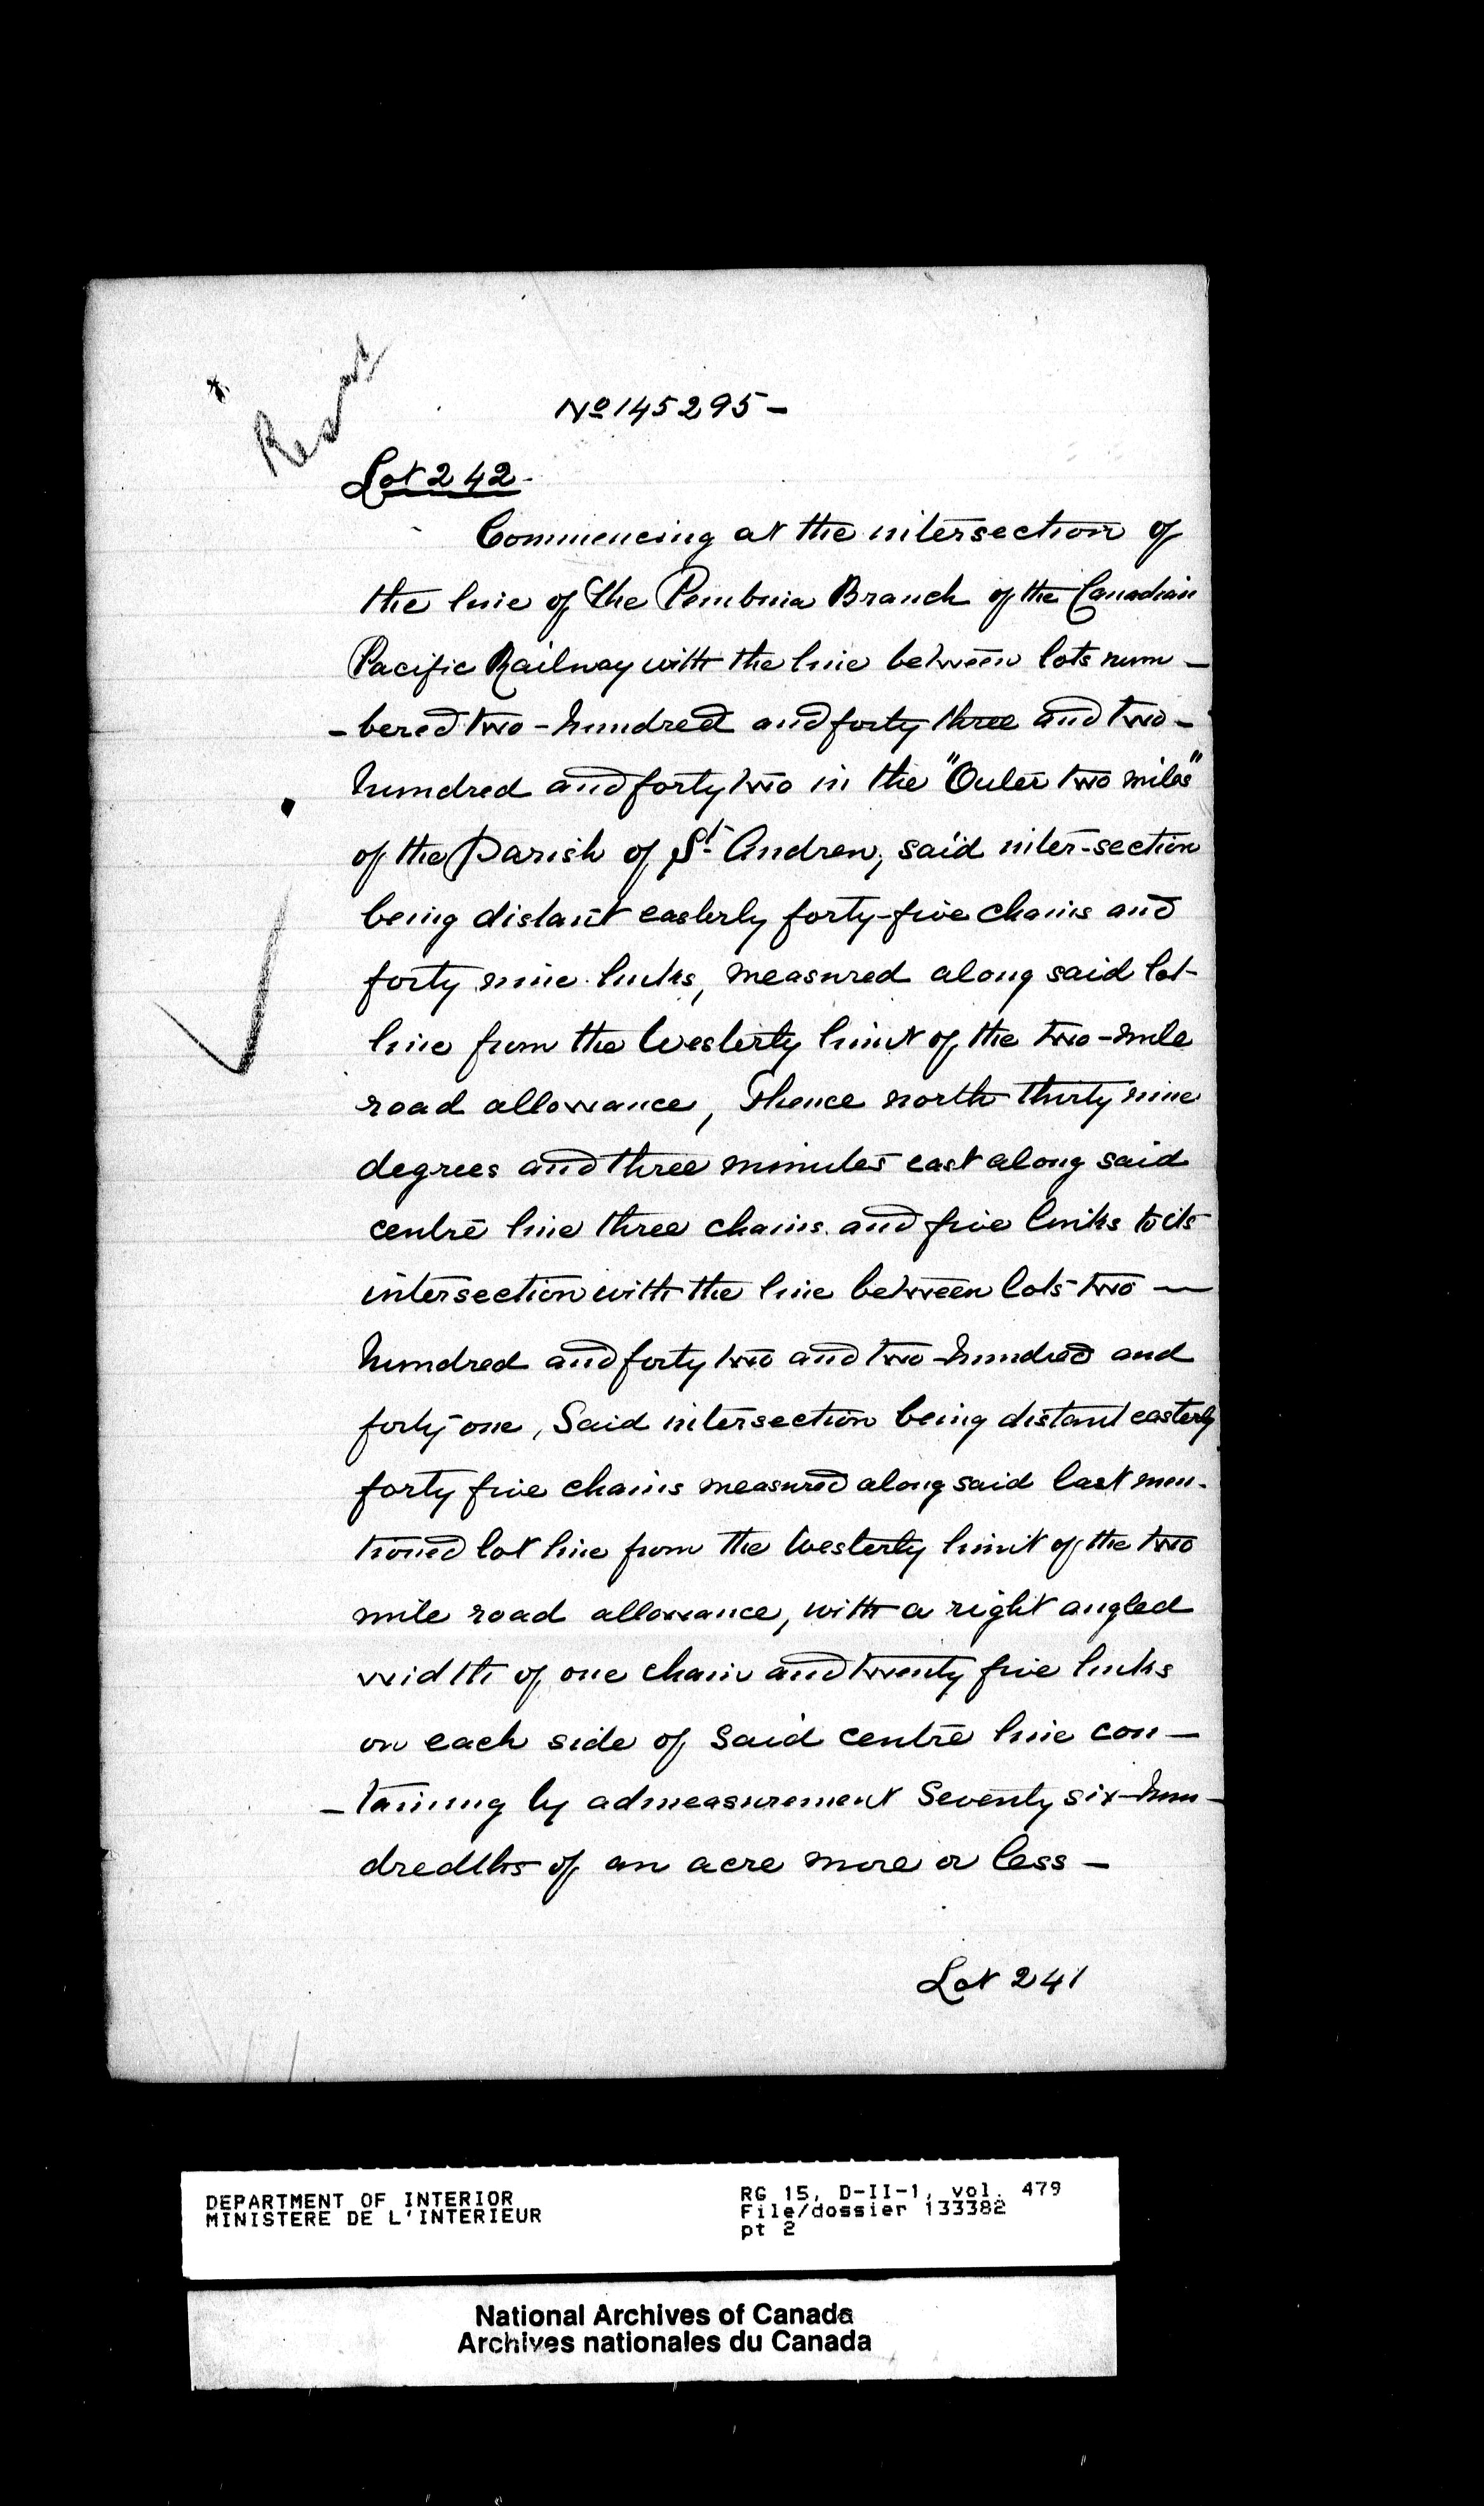 No 145295 -
Lot 242 -
Commencing at the intersection of
the line of the Pembina Branch of the Canadian
Pacific Railway with the line between lots num -
- bered two - hundred and forty three and two -
hundred and forty two in the "Outer two miles"
of the Parish of St. Andrew, said inter-section
being distant easterly forty-five chains and
forty nine links, measured along said lot
line from the Westerly limit of the two-mile
road allowance, Thence north thirty nine
degrees and three minutes east along said
centre line three chains and five links to its
intersection with the line between lots two —
hundred and forty two and two-hundred and
forty one, Said intersection being distant easterly
forty five chains measured along said last men-
tioned lot line from the Westerly limit of the two
mile road allowance, with a right angled
width of one chain and twenty five links
on each side of said centre line con —
- taining by admeasurement Seventy six-hun -
dredths of an acre more or less —
Lot 241
DEPARTMENT OF INTERIOR
MINISTERE DE L'INTERIEUR
RG 15, D-II-1, vol. 479
File/dossier 133382
pt 2
National Archives of Canada
Archives nationales du Canada